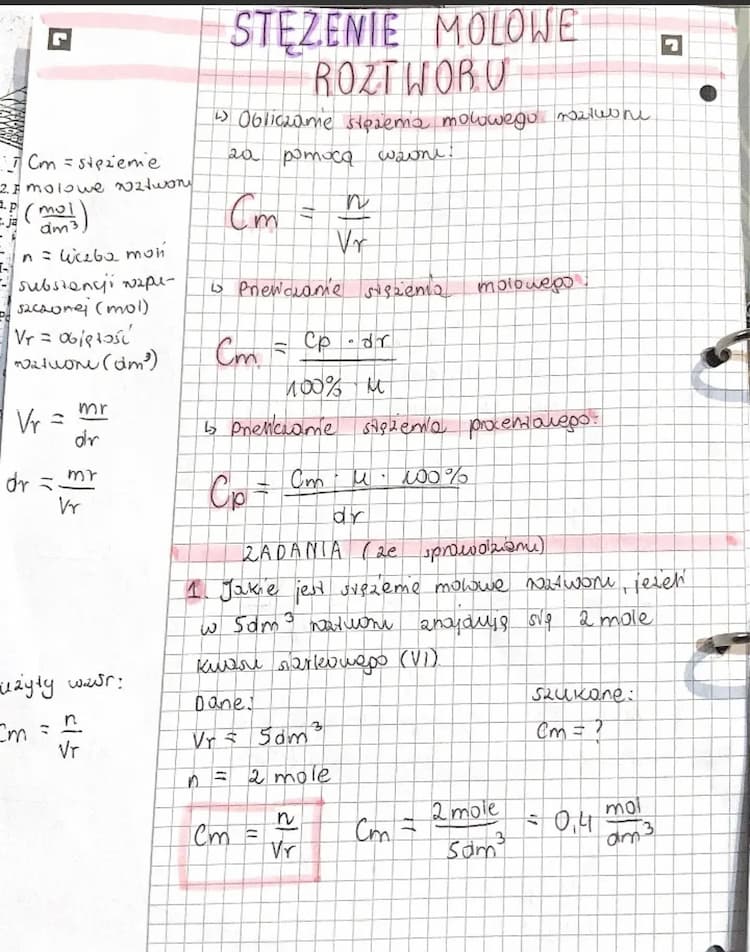 STĘŻENIE MOLOWE
ROZTWORU
↳ Obliczanie stężenia molowego roztworu
za pomocą wzoru:
Cm = n/Vr
↳ Przeliczanie stężenia molowego:
Cm = Cp · dr / 100% · M
↳ Przeliczanie stężenia procentowego:
Cp = Cm · M · 100% / dr
Cm = stężenie
molowe roztworu
(mol/dm³)
n = liczba moli
substancji rozpu-
szczonej (mol)
Vr = objętość
roztworu (dm³)
Vr = mr/dr
dr = mr/Vr
ZADANIA (ze sprawdzianu)
1. Jakie jest stężenie molowe roztworu, jeżeli
w 5dm³ roztworu znajdują się 2 mole
kwasu siarkowego (VI)
Dane:
Szukane:
Vr = 5dm³
Cm = ?
n = 2 mole
Cm = n/Vr
Cm = 2 mole/5dm³ = 0,4 mol/dm³
użyty wzór:
Cm = n/Vr